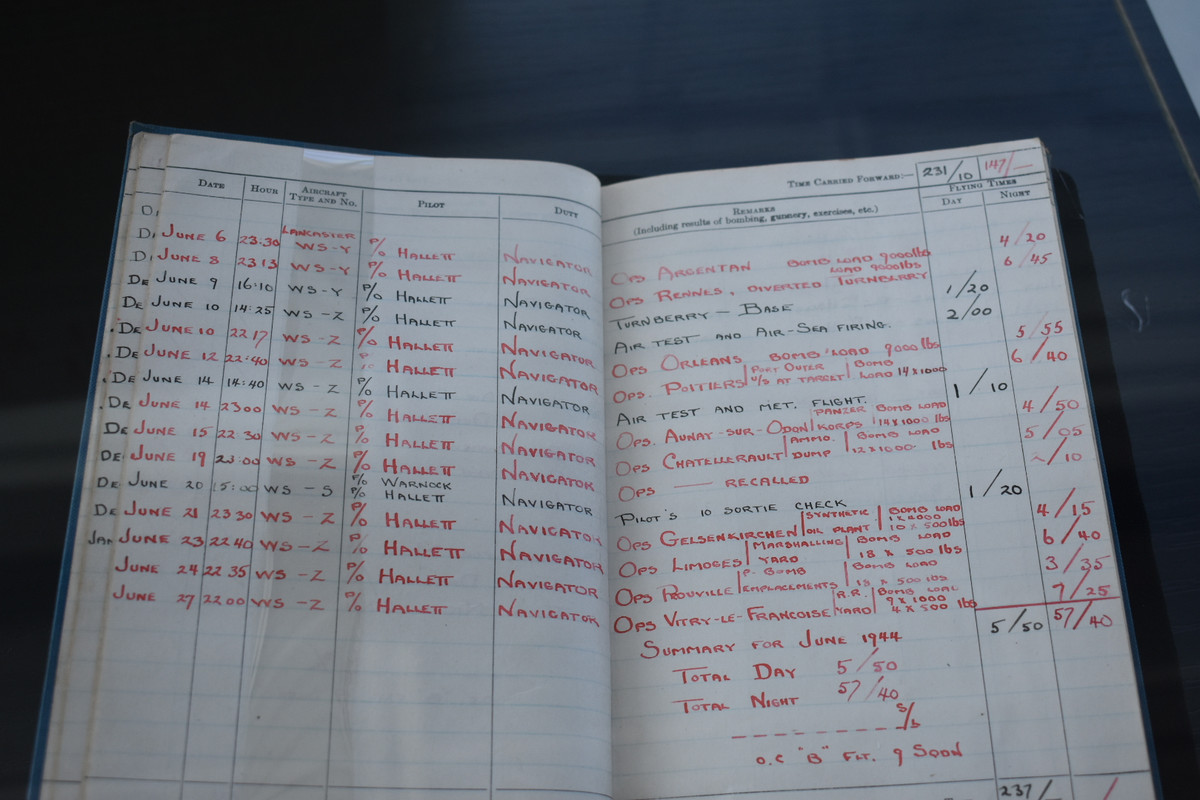 TIME CARRIED FORWARD:— 231/10 147/—
DATE HOUR AIRCRAFT TYPE AND NO. PILOT DUTY REMARKS (Including results of bombing, gunnery, exercises, etc.) FLYING TIMES DAY NIGHT
JUNE 6 23:30 LANCASTER WS-Y P/O HALLETT NAVIGATOR OPS ARGENTAN BOMB LOAD 9000lbs 4/20
JUNE 8 23 13 WS-Y P/O HALLETT NAVIGATOR OPS RENNES, DIVERTED TURNBERRY LOAD 9000lbs 6/45
JUNE 9 16:10 WS-Y P/O HALLETT NAVIGATOR TURNBERRY — BASE 1/20
JUNE 10 14:25 WS-Z P/O HALLETT NAVIGATOR AIR TEST AND AIR-SEA FIRING. 2/00
JUNE 10 22 17 WS-Z P/O HALLETT NAVIGATOR OPS ORLEANS BOMB LOAD 9000 lbs 5/55
JUNE 12 22:40 WS-Z HALLETT NAVIGATOR OPS. POITIERS PORT OUTER U/S AT TARGET BOMB LOAD 14X1000 6/40
JUNE 14 14:40 WS-Z P/O HALLETT NAVIGATOR AIR TEST AND MET. FLIGHT. 1/10
JUNE 14 23 00 WS-Z P/O HALLETT NAVIGATOR OPS. AUNAY-SUR-ODON PANZER KORPS BOMB LOAD 14X1000 lbs 4/50
JUNE 15 22 30 WS-Z P/O HALLETT NAVIGATOR OPS CHATELLERAULT AMMO. DUMP BOMB LOAD 12X1000 lbs 5/05
JUNE 19 23:00 WS-Z P/O HALLETT NAVIGATOR OPS —— RECALLED ~/10
JUNE 20 15:00 WS-S P/O WARNOCK P/O HALLETT NAVIGATOR PILOT'S 10 SORTIE CHECK 1/20
JUNE 21 23 30 WS-Z P/O HALLETT NAVIGATOR OPS GELSENKIRCHEN SYNTHETIC OIL PLANT BOMB LOAD 10 X 500 lbs 4/15
JUNE 23 22 40 WS-Z P/O HALLETT NAVIGATOR OPS LIMOGES MARSHALLING YARD BOMB LOAD 18 X 500 lbs 6/40
JUNE 24 22 35 WS-Z P/O HALLETT NAVIGATOR OPS PROUVILLE P- BOMB EMPLACEMENTS BOMB LOAD 18 X 500 lbs 3/35
JUNE 27 22 00 WS-Z P/O HALLETT NAVIGATOR OPS VITRY-LE-FRANCOISE R.R. YARD BOMB LOAD 9X1000 4X500 lbs 7/25
5/50 57/40
SUMMARY FOR JUNE 1944
TOTAL DAY 5/50
TOTAL NIGHT 57/40
S/L
O.C "B" FLT. 9 SQDN
237/—